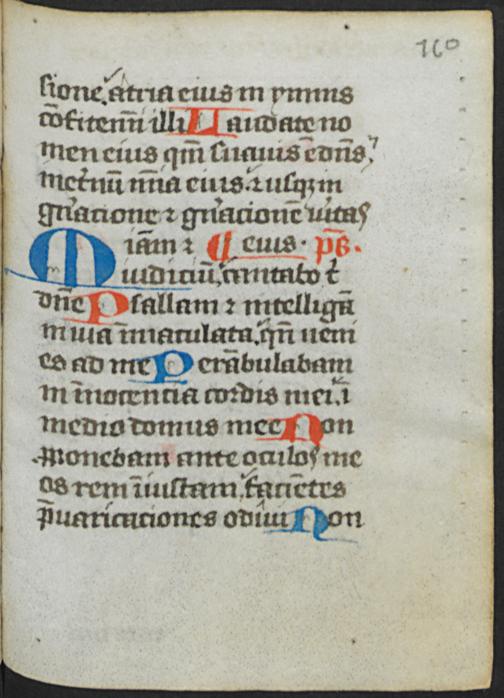 160
sione, atria eius in ymnis
cōfitemī illi Laudate no
men eius qm̄ suauis ē dn̄s,
in et̄nū mīa eius. ⁊ usq; in
gn̄atione ⁊ gn̄acionē uitas
⁊ ¶ eius. ps̄.
Miam ⁊ iudiciū, cantabo t̄
dn̄e Psallam ⁊ intelligā
in uia īmaculata, qn̄ ueni
es ad me Perābulabam
in īnocentia cordis mei, ī
medio domus mee Non
ꝓponebam ante oculos me
os rem īiustam, faciētes
p̄uaricaciones odiui Non